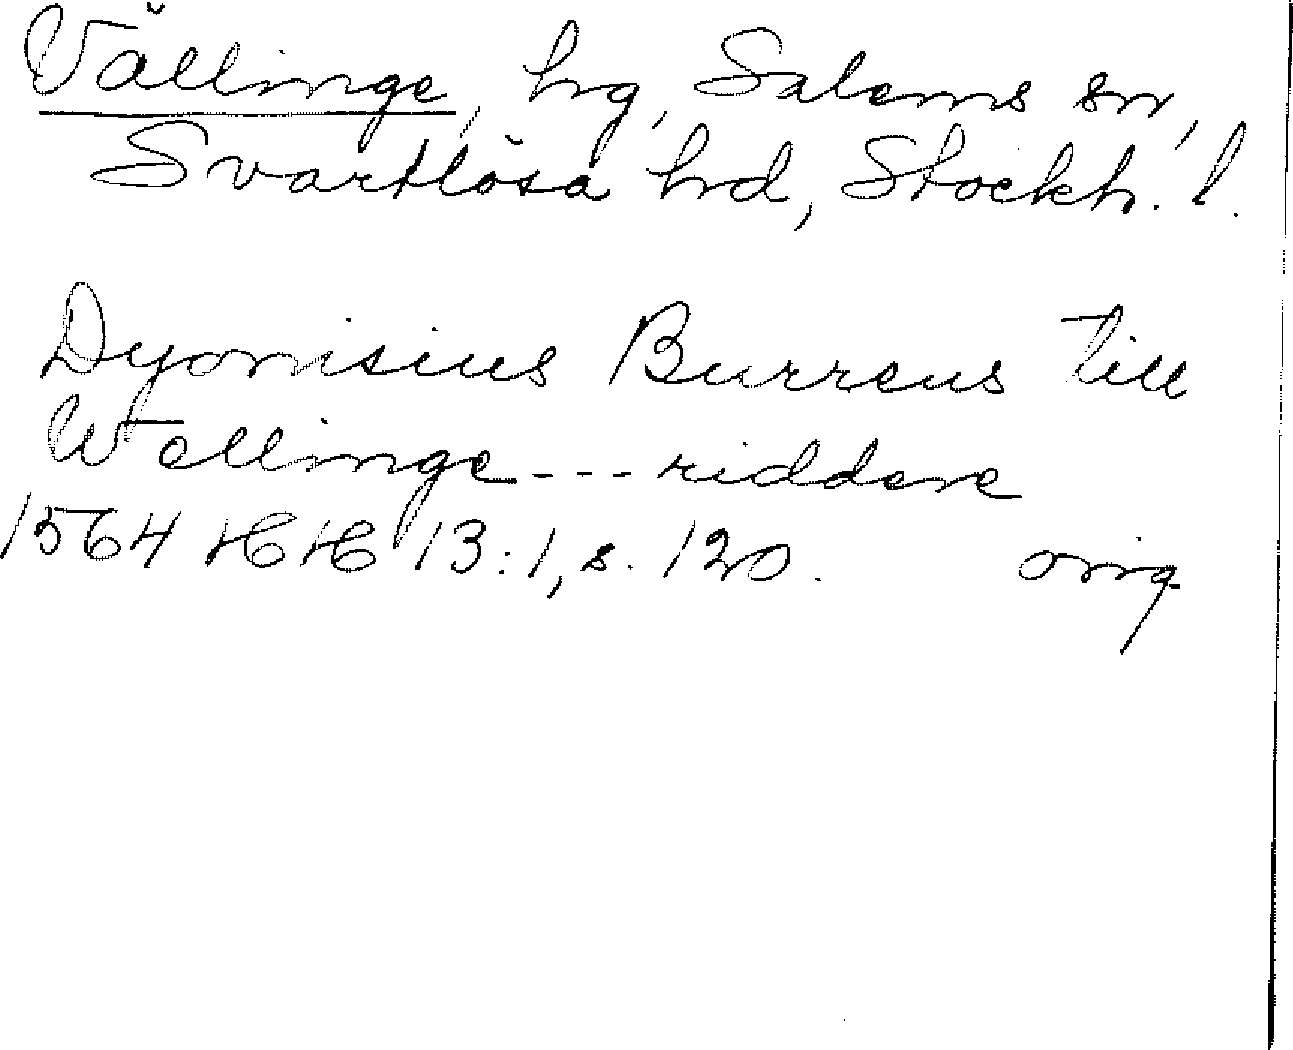 Vällinge, hg, Salems sn,
Svartlösa hd, Stockh. l.
Dyonisius Burreus till
Wellinge --- riddere
1564 HH 13:1, s. 120. orig